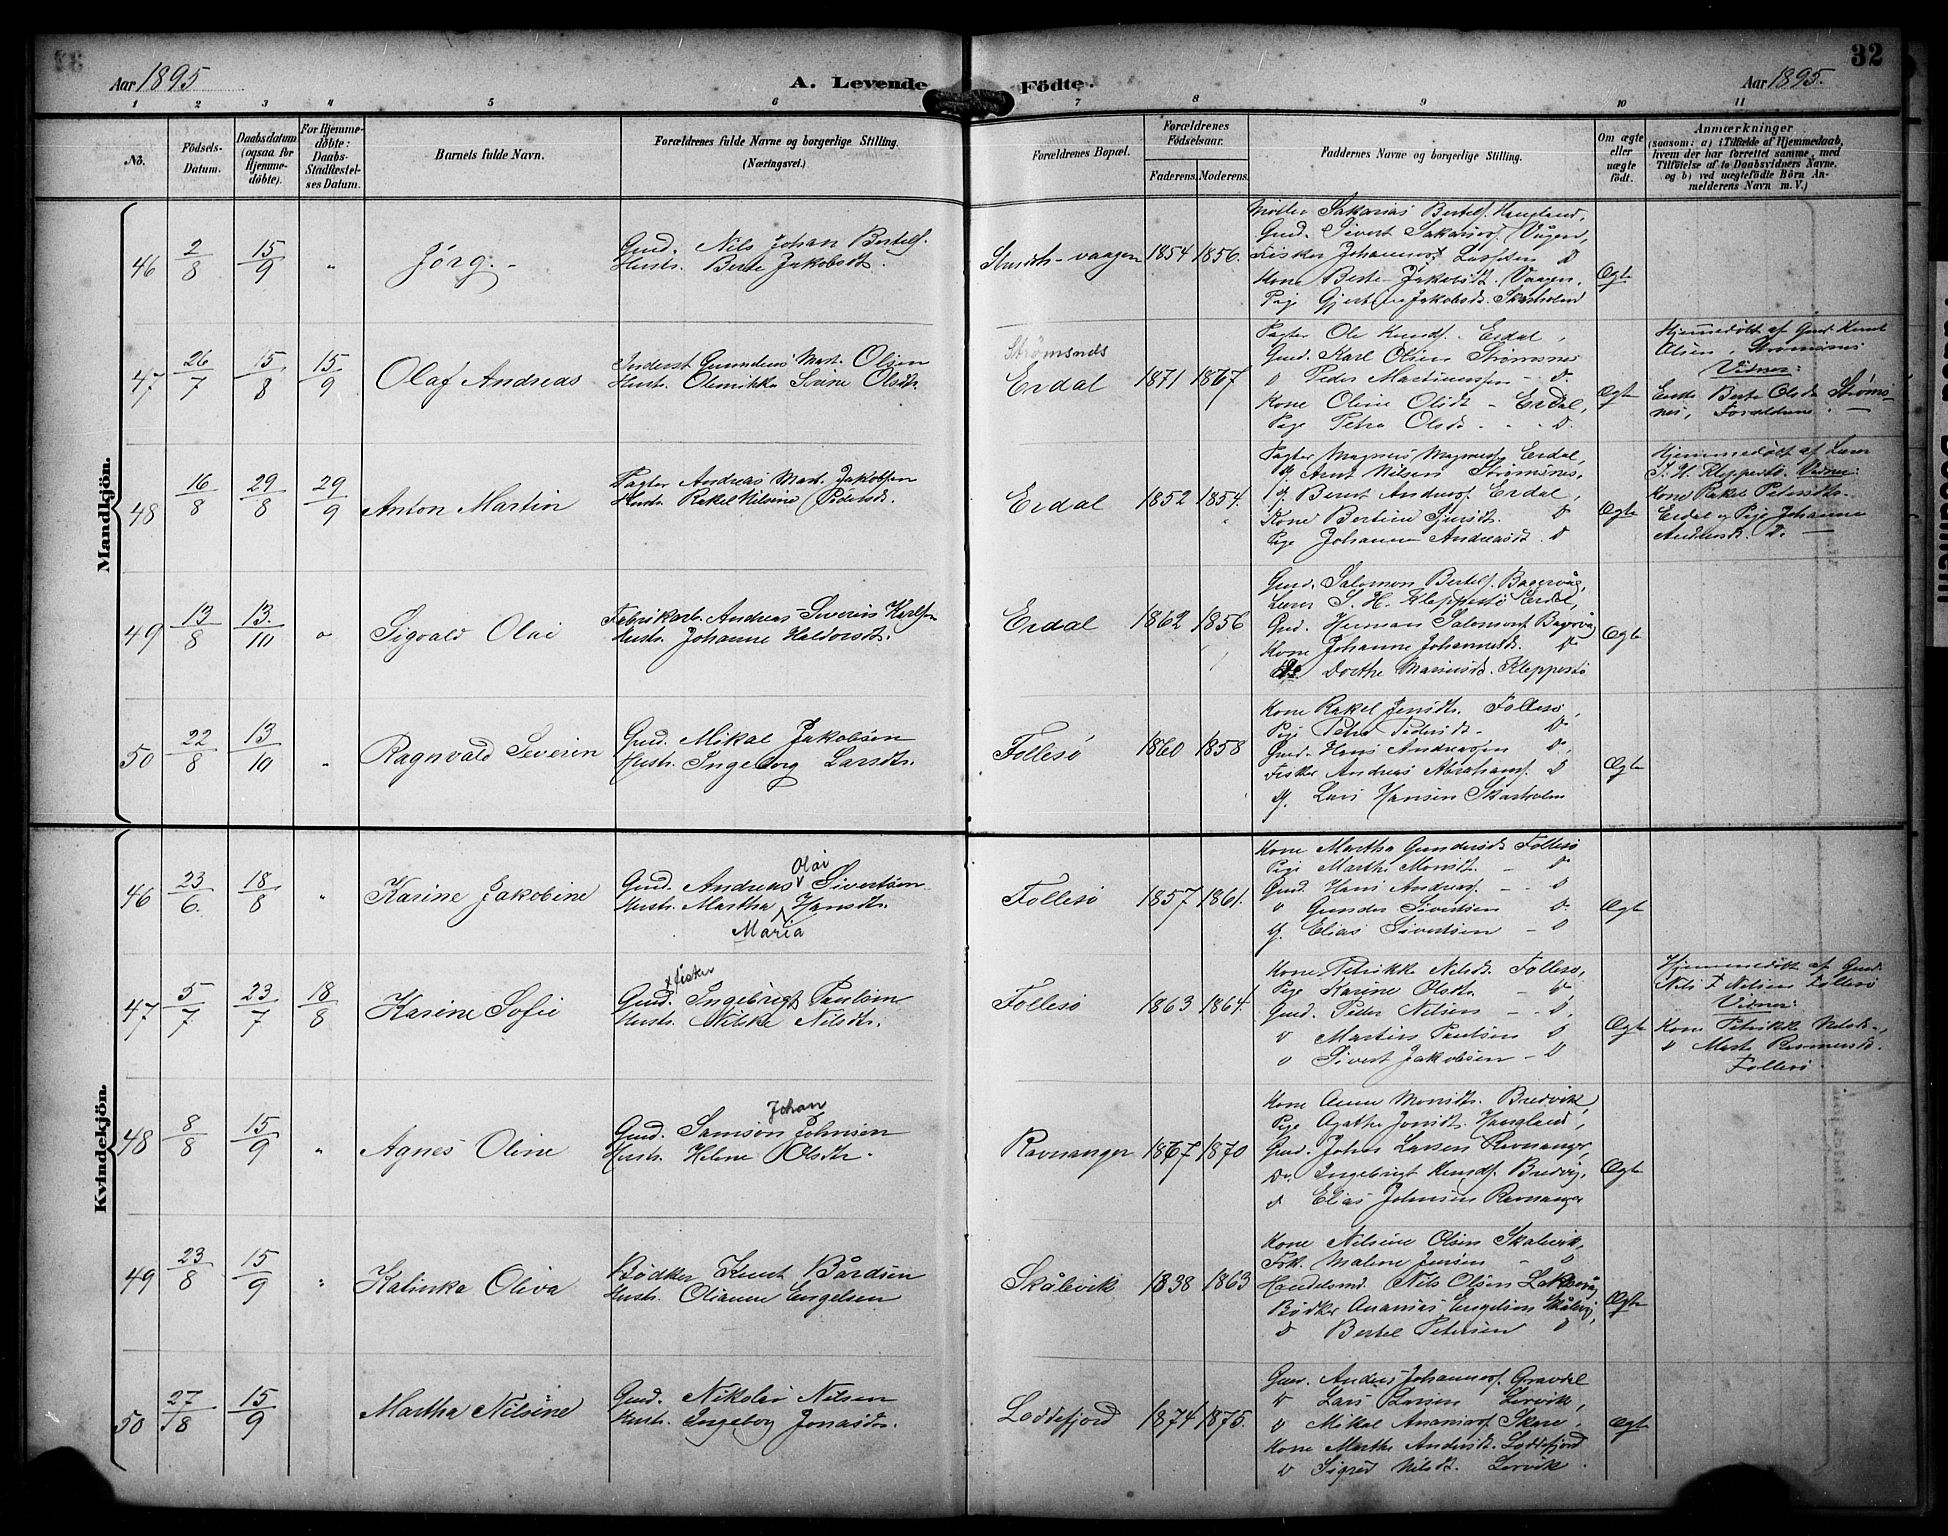 32
Aar 1895
A. Levende Födte.
Aar 1895.
1 2 3 4 5 6 7 8 9 10 11
No.
Födsels-Datum.
Daabsdatum (ogsaa for Hjemme-döbte).
For Hjemme-döbte: Daabs-Stadfæstel-ses Datum.
Barnets fulde Navn.
Forældrenes fulde Navne og borgerlige Stilling.
(Næringsvei.)
Forældrenes Bopæl.
Forældrenes Födselsaar.
Faderens. Moderens.
Faddernes Navne og borgerlige Stilling.
Om ægte eller uægte födt.
Anmærkninger
(soasom: a) i Tilfælde af Hjemmedaab,
hvem der har forrettet samme, med
Tilföielse af to Daabsvidners Navne,
og b) ved uægtefödte Börn An-
melderens Navn m. V.)
Mandkjön.
46 2/8 15/9 " Jørg. -
Gmd. Nils Johan Bertels.
Hustr. Berte Jakobsdt.
1854 1856.
Sakarias Bertels. Haugland,
Gmd. Sivert Sakarias. Vågen,
Fisker Johannes D
Kone Berte Jakobsdt. Vaagen,
Pige Jakobsdt. Skarholm
Ægte
47 26/7 15/8 15/9 Olaf Andreas
Inderst Gunnderus Mart. Olsen
Hustr. Olinikka Sirine Olsdtr.
Strømsnes
Erdal 1871 1867
Pagter Ole Knuds. Erdal,
Gmd. Karl Olsen Strømsnes
" Peder Martinussen - D.
Kone Oline Olsdt - Erdal,
Pige Petra Olsdt. - D.
Ægte
Hjemmedøbt af Gmd. Knut
Olsen, Strømsnes
Vidner:
Enke Berte Olsdt. Strøms-
nes, Forældrene. -
48 16/8 29/8 29/9 Anton Martin
Pagter Andreas Mart. Jakobsen
Hustr. Rakel Nilsine Pedersdt.
Erdal 1852 1854.
Pagter Magnus Magnus. Erdal,
do Arnt Nilsen Strømsnes,
Berent Anders. Erdal,
Kone Bertine Sjursdt. D
Pige Johanne Andreasdt. D
Ægte
Hjemmedøbt af Lærer
S. H. Kleppestø. Vidner:
Kone Rakel Petersdtr.
Erdal og Pige Johanne
Andersdt. D. -
49 13/8 13./10 " Sigvald Olai
Fabrikarb. Andreas Severin Karlsen
Hustr. Johanne Haldorsdt.
Erdal 1862 1856
Gmd. Salomon Bertels. Bagervåg,
Lærer S. H. Kleppestø Erdal,
Gmd. Herman Salomons. Bagervåg
Kone Johanne Johannesdt. D
Do Dorthe Mariusdt. Kleppestø
Ægte
50 22/8 13/10 " Ragnvald Severin
Gmd. Mikal Jakobsen
Hustr. Ingeborg Larsdtr.
Follesø 1860 1858
Kone Rakel Jensdtr. Follesø,
Pige Petra Pedersdt. D.
Gmd. Hans Andreassen D.
Fisker Andreas Abrahams. D
G. Lars Hansen Skarholm
Ægte
Kvindekjön.
46 23/6. 18/8 " Karine Jakobine
Gmd. Andreas Olai Sivertsen
Hustr. Martha Maria Hansdtr.
Follesø 1857 1861.
Kone Martha Gundersdt Follesø
Pige Marthe Monsdt. - D
Gmd. Hans Andreas. - D
" Gunder Sivertsen D
G. Elias Sivertsen - D
Ægte
47 5/7 23/7 18/8 Karine Sofie
x fisker
Gmd. Ingebrigt Paulsen
Hustr. Nilske Nilsdtr.
Follesø 1863 1864.
Kone Petrikke Nilsdt. Follesø,
Pige Karine Olsdtr. - D,
Gmd. Peder Nilsen - D,
" Martin Paulsen D
" Sivert Jakobsen - D
Ægte
Hjemmedøbt af Gmd.
Nils Nilsen Follesø
Vidner:
Kone Petrikke Nilsdt.,
" Marte Rasmusdt.
Follesø.
48 8/8 15/9 " Agnes Oline
Gmd. Samson Johan Johnsen
Hustr. Helene Olsdtr.
Ravnanger 1867 1870
Kone Anne Monsdtr. Bredvik,
Pige Agathe Jonsdt. Haugland,
Gmd. Johan Larsen Ravnanger,
Do. Ingebrigt Knuds. Bredvig,
D Elias Johnsen Ravnanger
Ægte
49 23/8 15/9 " Katinka Oliva
Bødker Knut Bårdsen
Hustr. Olianne Engelsen
Skålevik 1838 1863
Kone Nilsine Olsen Skålevik,
Frk. Malene Jensen - D
Handelsmd. Nils Olsen Laksevåg
Bødker Ananias Engelsen Skålevig,
D Bertel Petersen D
Ægte
50 27/8 15/9 Martha Nilsine
Gmd. Nikolai Nilsen
Hustr. Ingeborg Jonasdtr.
Loddefjord 1874 1875.
Gmd. Anders Johannes. Gravdal
" Lars Larsen Lervik,
" Mikal Ananias. Skare,
Kone Marthe Andersdt. Loddefjord
" Sigrid Nilsdt. Lervik.
Ægte